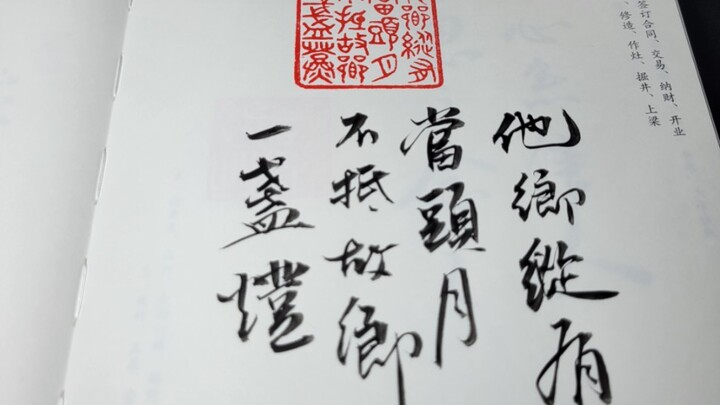 签订合同、交易、纳财、开业
、修造、作灶、掘井、上梁
他鄉縱有
當頭月
不抵故鄉
一盞燈
鄉縱有
當頭月
不抵故鄉
一盞燈